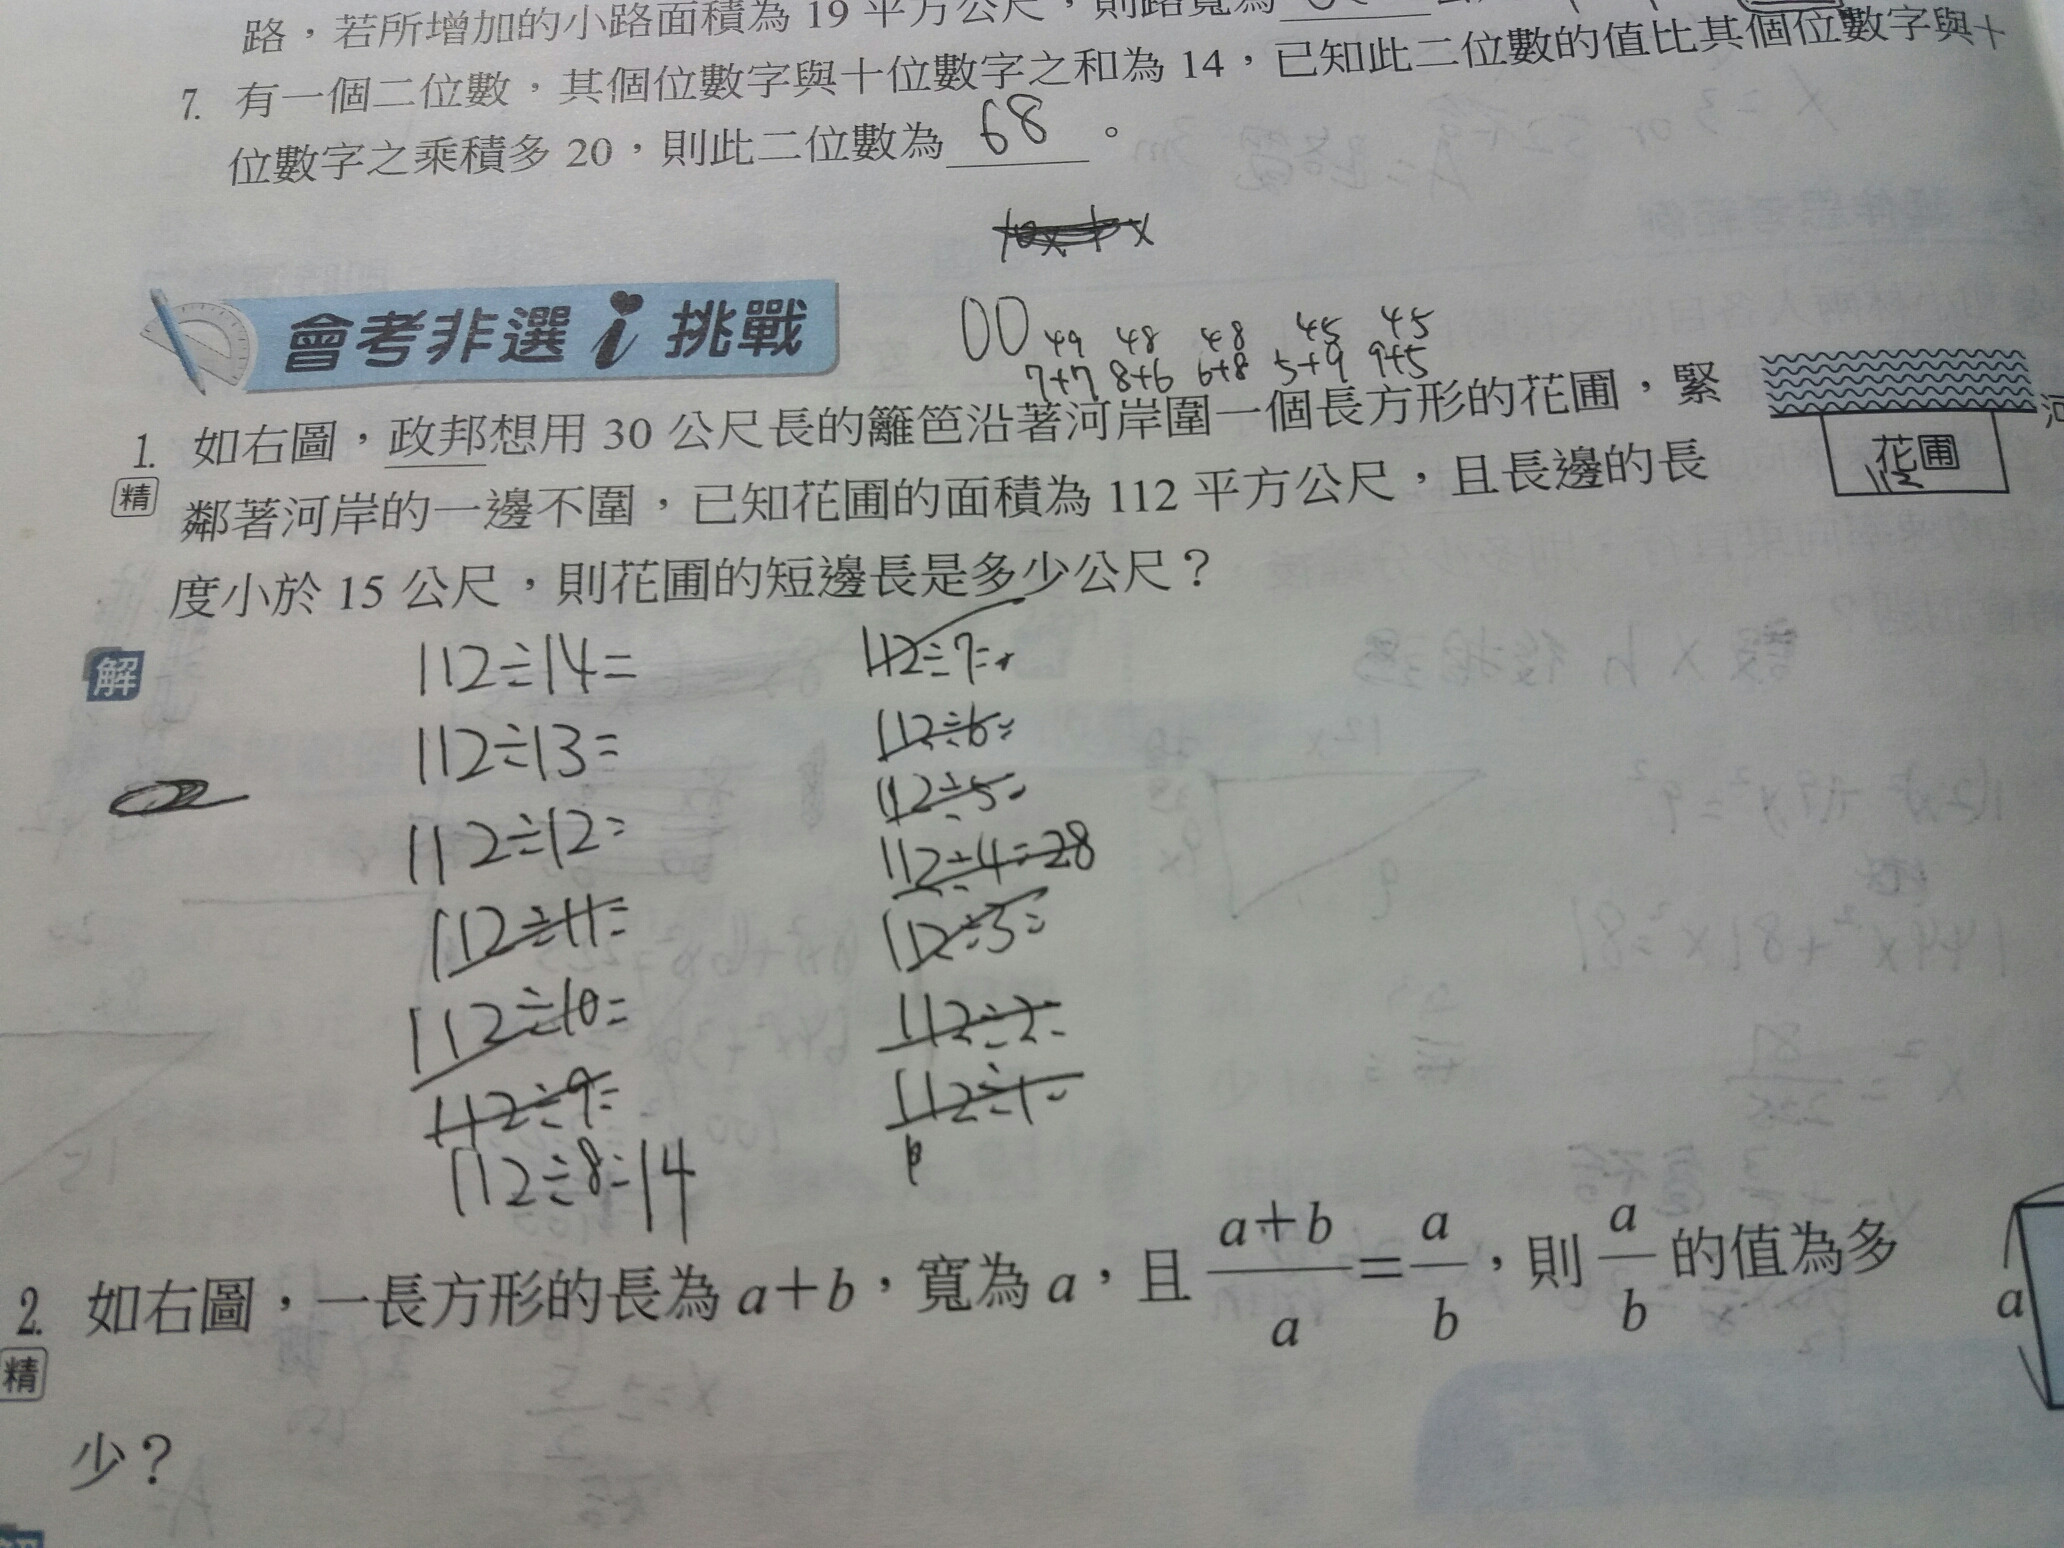 路，若所增加的小路面積為 19 平方公尺，則路寬為
7. 有一個二位數，其個位數字與十位數字之和為 14，已知此二位數的值比其個位數字與十
位數字之乘積多 20，則此二位數為 68 。
會考非選 i 挑戰
00 49 48 48 45 45
7+7 8+6 6+8 5+9 9+5
1. 如右圖，政邦想用 30 公尺長的籬笆沿著河岸圍一個長方形的花圃，緊
精 鄰著河岸的一邊不圍，已知花圃的面積為 112 平方公尺，且長邊的長
度小於 15 公尺，則花圃的短邊長是多少公尺？
河
花圃
112
解
112÷14=
112÷13=
112÷12=
112÷11=
112÷10=
112÷9=
112÷8=14
112÷7=
112÷6=
112÷5=
112÷4=28
112÷3=
112÷2=
112÷1=
2. 如右圖，一長方形的長為 a＋b，寬為 a，且 a+b/a = a/b，則 a/b 的值為多
精
少？
a
解